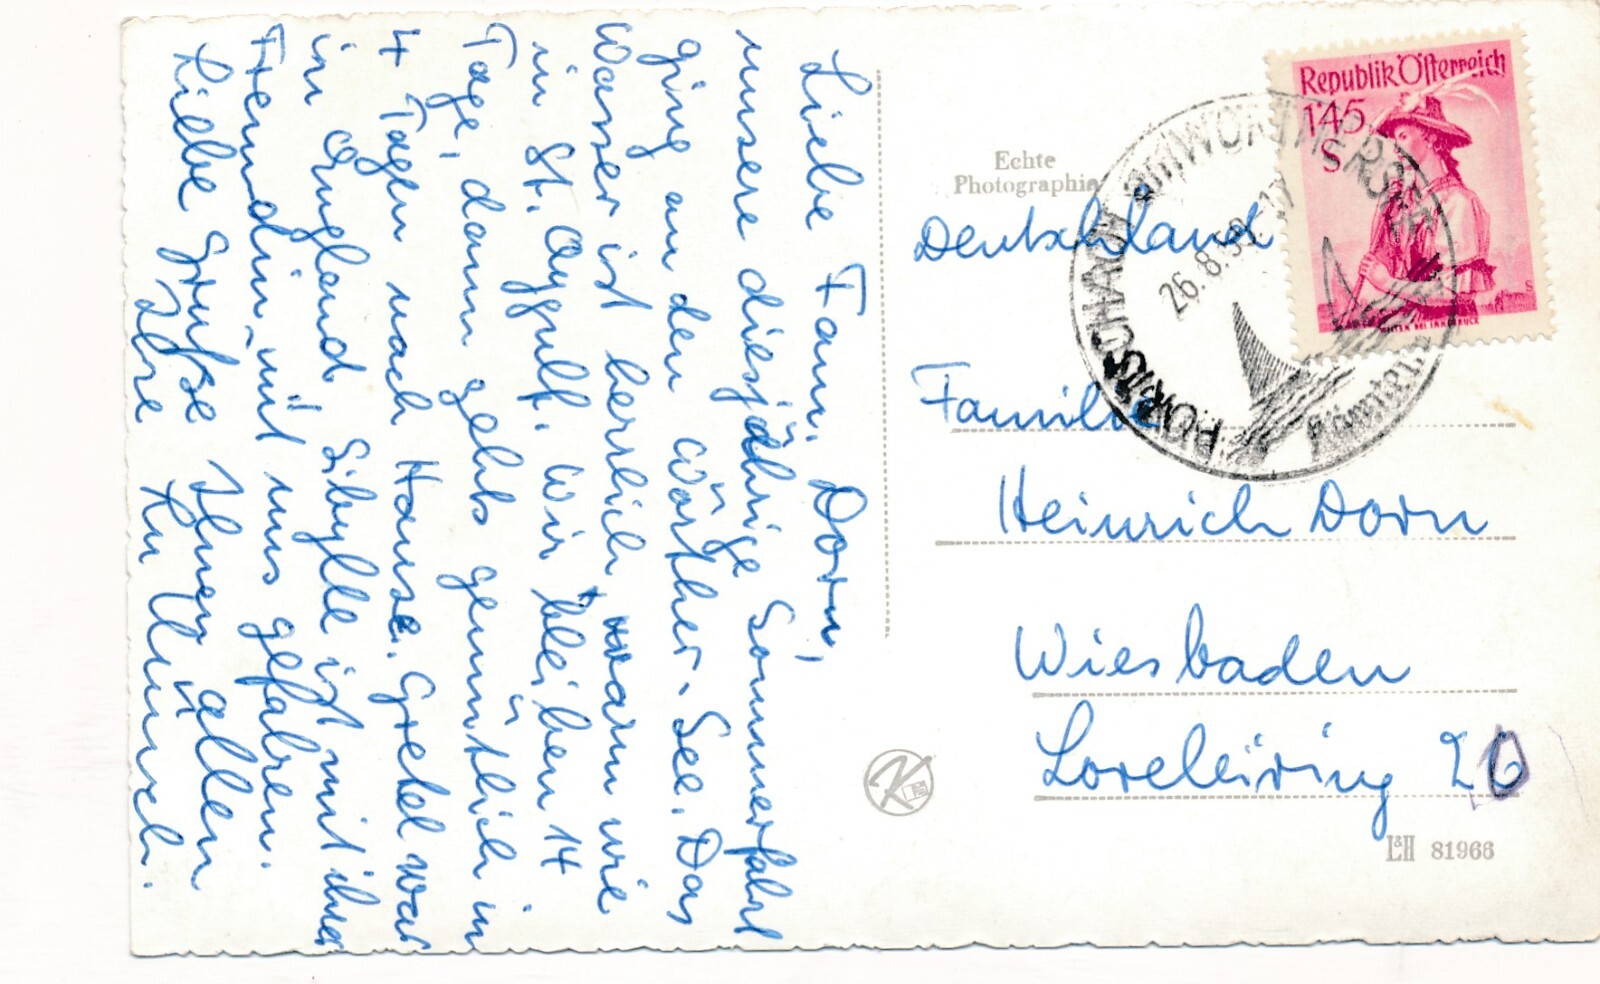 Liebe Fam. Dorn,
unsere diesjährige Sommerfahrt
ging an den Wörther-See. Das
Wasser ist herrlich warm wie
in St. Aygulf. Wir bleiben 14
Tage, dann gehts gemütlich in
4 Tagen nach Hause. Gretel war
in England Sibylle ist mit ihrer
Freundin mit uns gefahren.
Liebe Grüße Ihnen allen
Ihre
Echte
Photographie
Deutschland
Familie
Heinrich Dorn
Wiesbaden
Loreleiring 20
L&H 81966
K
Republik Österreich
1'45
S
PÖRTSCHACH am WÖRTHERSEE
26.8.58-17
Kärnten